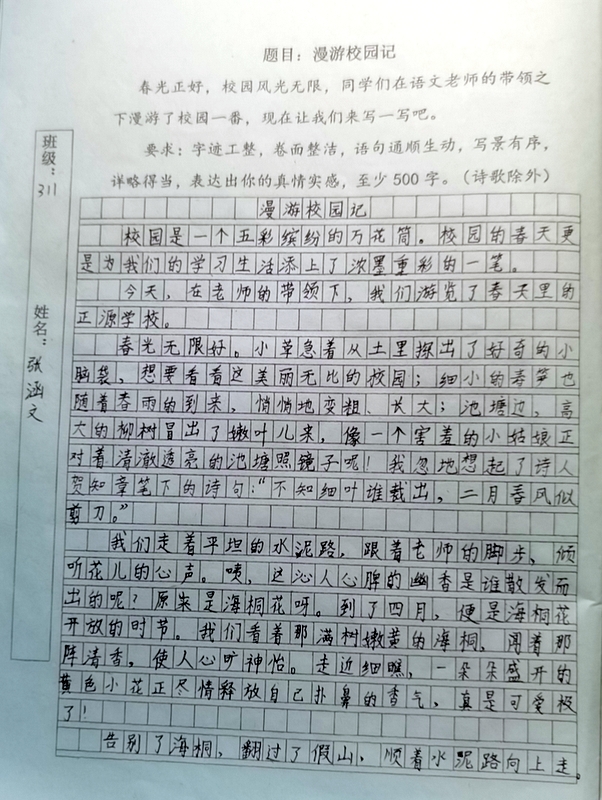 题目：漫游校园记
春光正好，校园风光无限，同学们在语文老师的带领之
下漫游了校园一番，现在让我们来写一写吧。
要求：字迹工整，卷面整洁，语句通顺生动，写景有序，
详略得当，表达出你的真情实感，至少 500 字。（诗歌除外）
班级：311
姓名：张涵文
漫游校园记
校园是一个五彩缤纷的万花筒。校园的春天更
是为我们的学习生活添上了浓墨重彩的一笔。
今天，在老师的带领下，我们游览了春天里的
正源学校。
春光无限好。小草急着从土里探出了好奇的小
脑袋，想要看看这美丽无比的校园；细小的春笋也
随着春雨的到来，悄悄地变粗、长大；池塘边，高
大的柳树冒出了嫩叶儿来，像一个害羞的小姑娘正
对着清澈透亮的池塘照镜子呢！我忽地想起了诗人
贺知章笔下的诗句：“不知细叶谁裁出，二月春风似
剪刀。”
我们走着平坦的水泥路，跟着老师的脚步，倾
听花儿的心声。咦，这沁人心脾的幽香是谁散发而
出的呢？原来是海桐花呀。到了四月，便是海桐花
开放的时节。我们看着那满树嫩黄的海桐，闻着那
阵清香，使人心旷神怡。走近细瞧，一朵朵盛开的
黄色小花正尽情释放自己扑鼻的香气，真是可爱极
了！
告别了海桐，翻过了假山，顺着水泥路向上走。